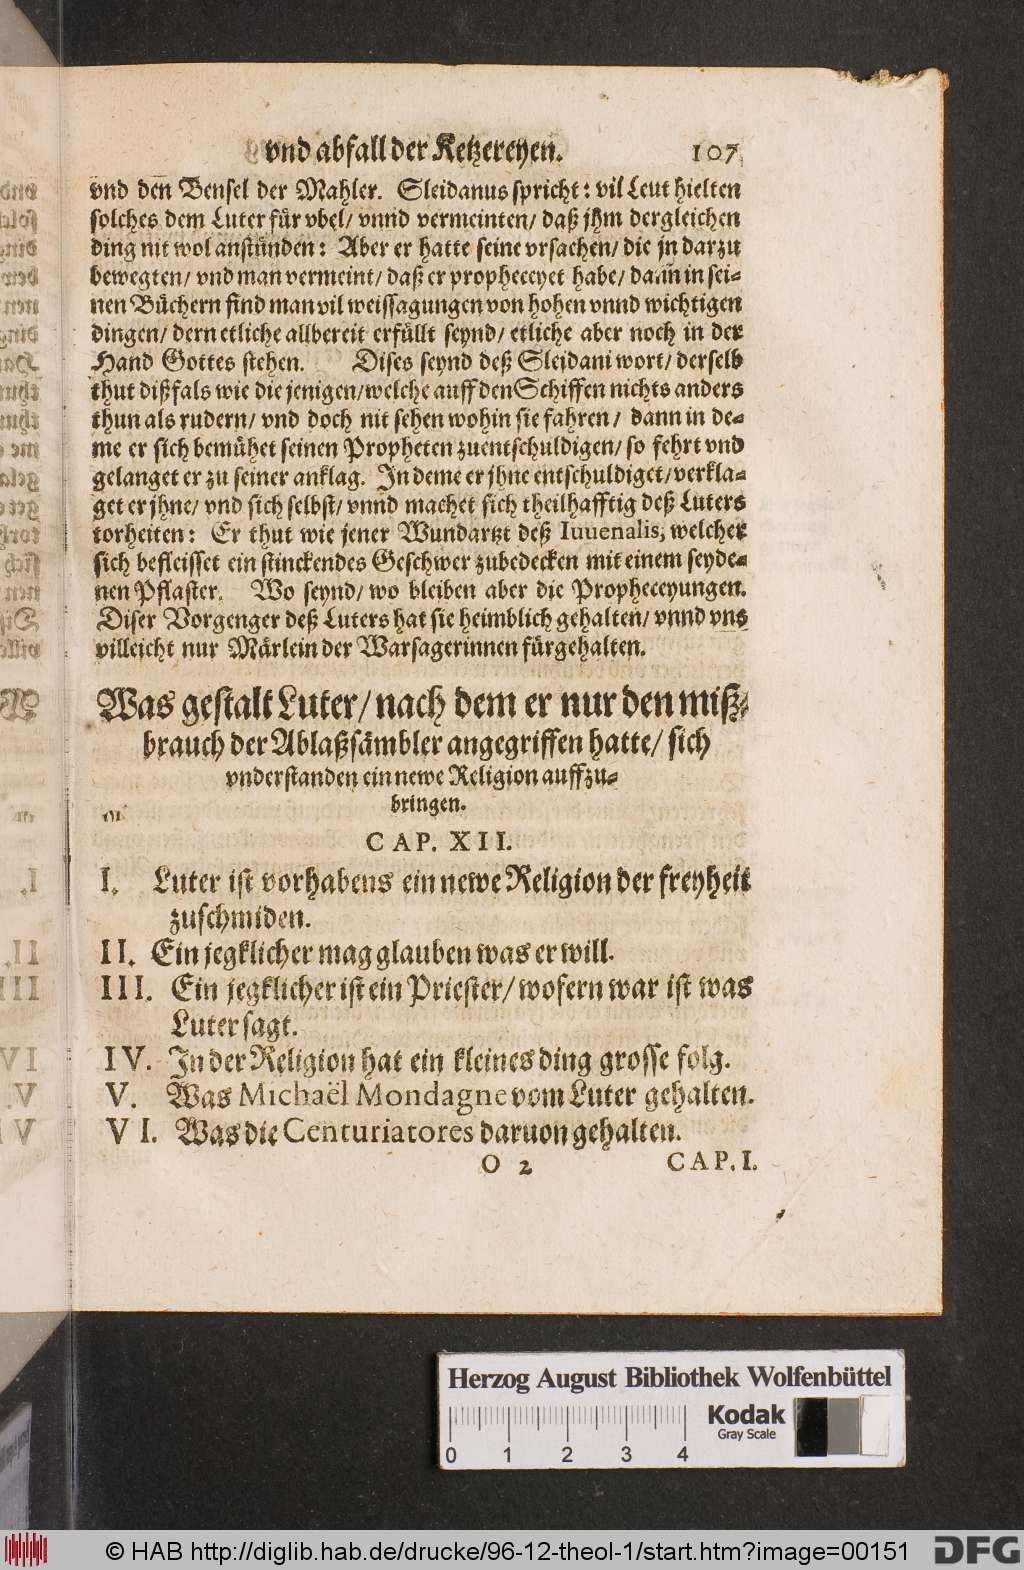 vnd abfall der Ketzereyen. 107
vnd den̄ Bensel der Mahler. Sleidanus spricht: vil Leut hielten
solches dem Luter für vbel/ vnnd vermeinten/ daß jhm dergleichen
ding nit wol anstünden: Aber er hatte seine vrsachen/ die jn darzu
bewegten/ vnd man vermeint/ daß er propheceyet habe/ dann in sei-
nen Büchern find man vil weissagungen von hohen vnnd wichtigen
dingen/ dern etliche allbereit erfüllt seynd/ etliche aber noch in der
Hand Gottes stehen. Dises seynd deß Sleidani wort/ derselb
thut dißfals wie die jenigen/welche auff den Schiffen nichts anders
thun als rudern/ vnd doch nit sehen wohin sie fahren/ dann in de-
me er sich bemühet seinen Propheten zuentschuldigen/ so fehrt vnd
gelanget er zu seiner anklag. In deme er jhne entschuldiget/verkla-
get er jhne/ vnd sich selbst/ vnnd machet sich theilhafftig deß Luters
torheiten: Er thut wie jener Wundartzt deß Iuuenalis, welcher
sich befleisset ein stinckendes Geschwer zubedecken mit einem seyde-
nen Pflaster. Wo seynd/ wo bleiben aber die Propheceyungen.
Diser Vorgenger deß Luters hat sie heimblich gehalten/ vnnd vns
villeicht nur Märlein der Warsagerinnen fürgehalten.
Was gestalt Luter/ nach dem er nur den miß-
brauch der Ablaßsämbler angegriffen hatte/ sich
vnderstanden ein newe Religion auffzu-
bringen.
CAP. XII.
I. Luter ist vorhabens ein newe Religion der freyheit
zuschmiden.
II. Ein jegklicher mag glauben was er will.
III. Ein jegklicher ist ein Priester/ wofern war ist was
Luter sagt.
IV. In der Religion hat ein kleines ding grosse folg.
V. Was Michaël Mondagne vom Luter gehalten.
VI. Was die Centuriatores daruon gehalten.
O 2 CAP. I.
Herzog August Bibliothek Wolfenbüttel
Kodak
Gray Scale
0 1 2 3 4
© HAB http://diglib.hab.de/drucke/96-12-theol-1/start.htm?image=00151
DFG